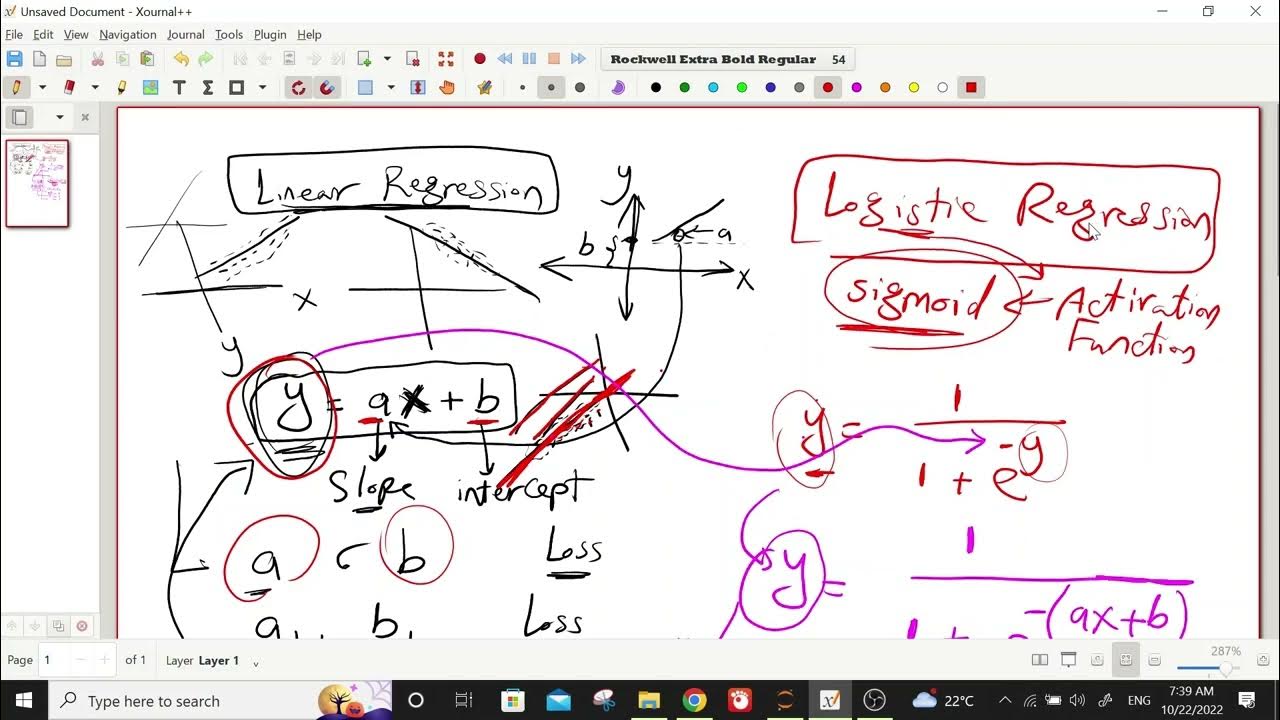 Unsaved Document - Xournal++
File Edit View Navigation Journal Tools Plugin Help
Rockwell Extra Bold Regular 54
Linear Regression
y
b
a
x
x
y
y = ax + b
Slope intercept
a b Loss
a1 b1 Loss
Logistic Regression
sigmoid Activation
Function
y = 1
1 + e -y
y = 1
1 + e -(ax+b)
Page 1 of 1 Layer Layer 1
287%
Type here to search
22°C
ENG
7:39 AM
10/22/2022